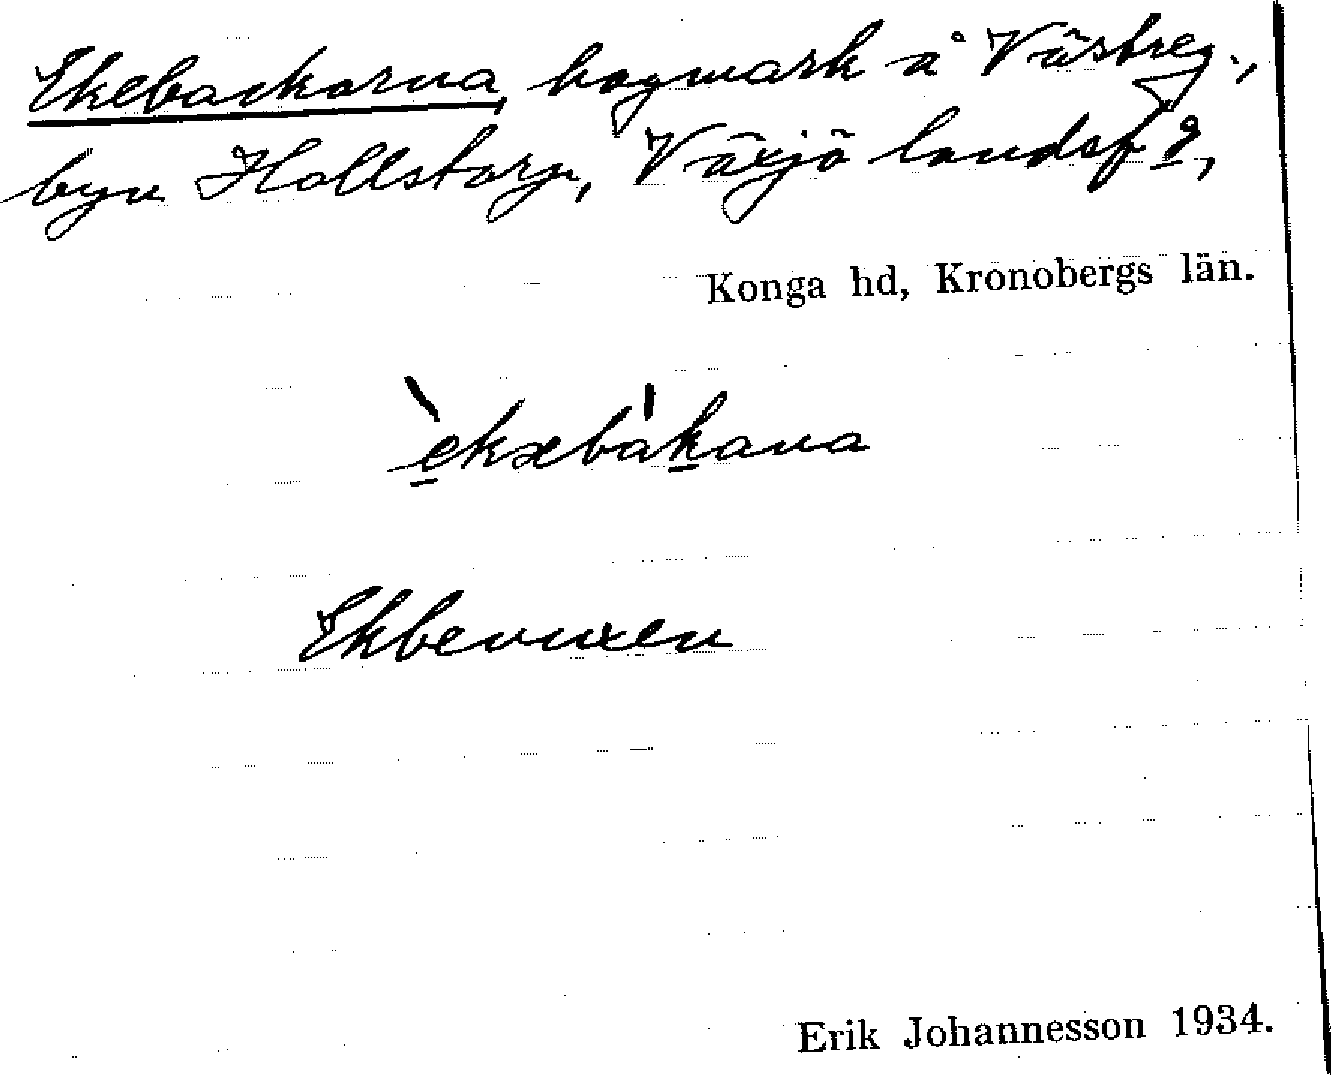 Ekebackarna, hagmark å Västreg.,
byn Hollstorp, Växjö landsf g,
Konga hd, Kronobergs län.
Ekbevuxen
Erik Johannesson 1934.